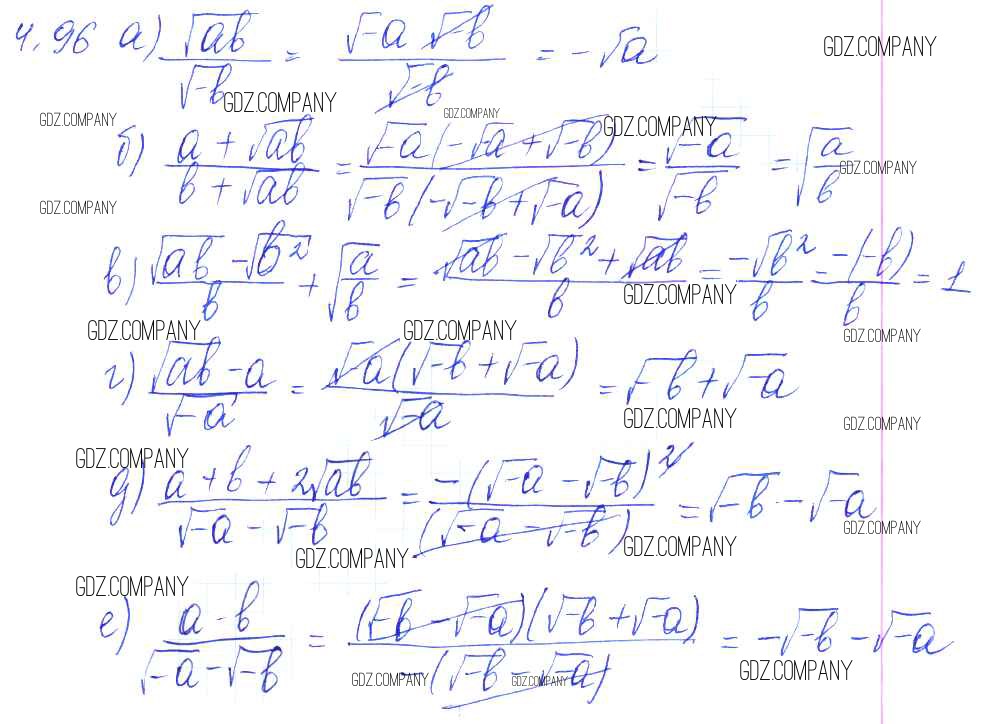 4.96 а) √ab / √-b = √-a √-b / √-b = -√a
GDZ.COMPANY
GDZ.COMPANY
GDZ.COMPANY
GDZ.COMPANY
GDZ.COMPANY
б) a + √ab / b + √ab = √-a (-√-a + √-b) / √-b (-√-b + √-a) = √-a / √-b = √a/b
GDZ.COMPANY
GDZ.COMPANY
в) √ab - √b² / b + √a/b = √ab - √b² + √ab / b = -√b² / b = -(-b) / b = 1
GDZ.COMPANY
GDZ.COMPANY
GDZ.COMPANY
GDZ.COMPANY
г) √ab - a / √-a = √-a (√-b + √-a) / √-a = √-b + √-a
GDZ.COMPANY
GDZ.COMPANY
GDZ.COMPANY
д) a + b + 2√ab / √-a - √-b = -(√-a - √-b)² / (√-a - √-b) = √-b - √-a
GDZ.COMPANY
GDZ.COMPANY
GDZ.COMPANY
GDZ.COMPANY
е) a - b / √-a - √-b = (√-b - √-a)(√-b + √-a) / -(√-b - √-a) = -√-b - √-a
GDZ.COMPANY
GDZ.COMPANY
GDZ.COMPANY